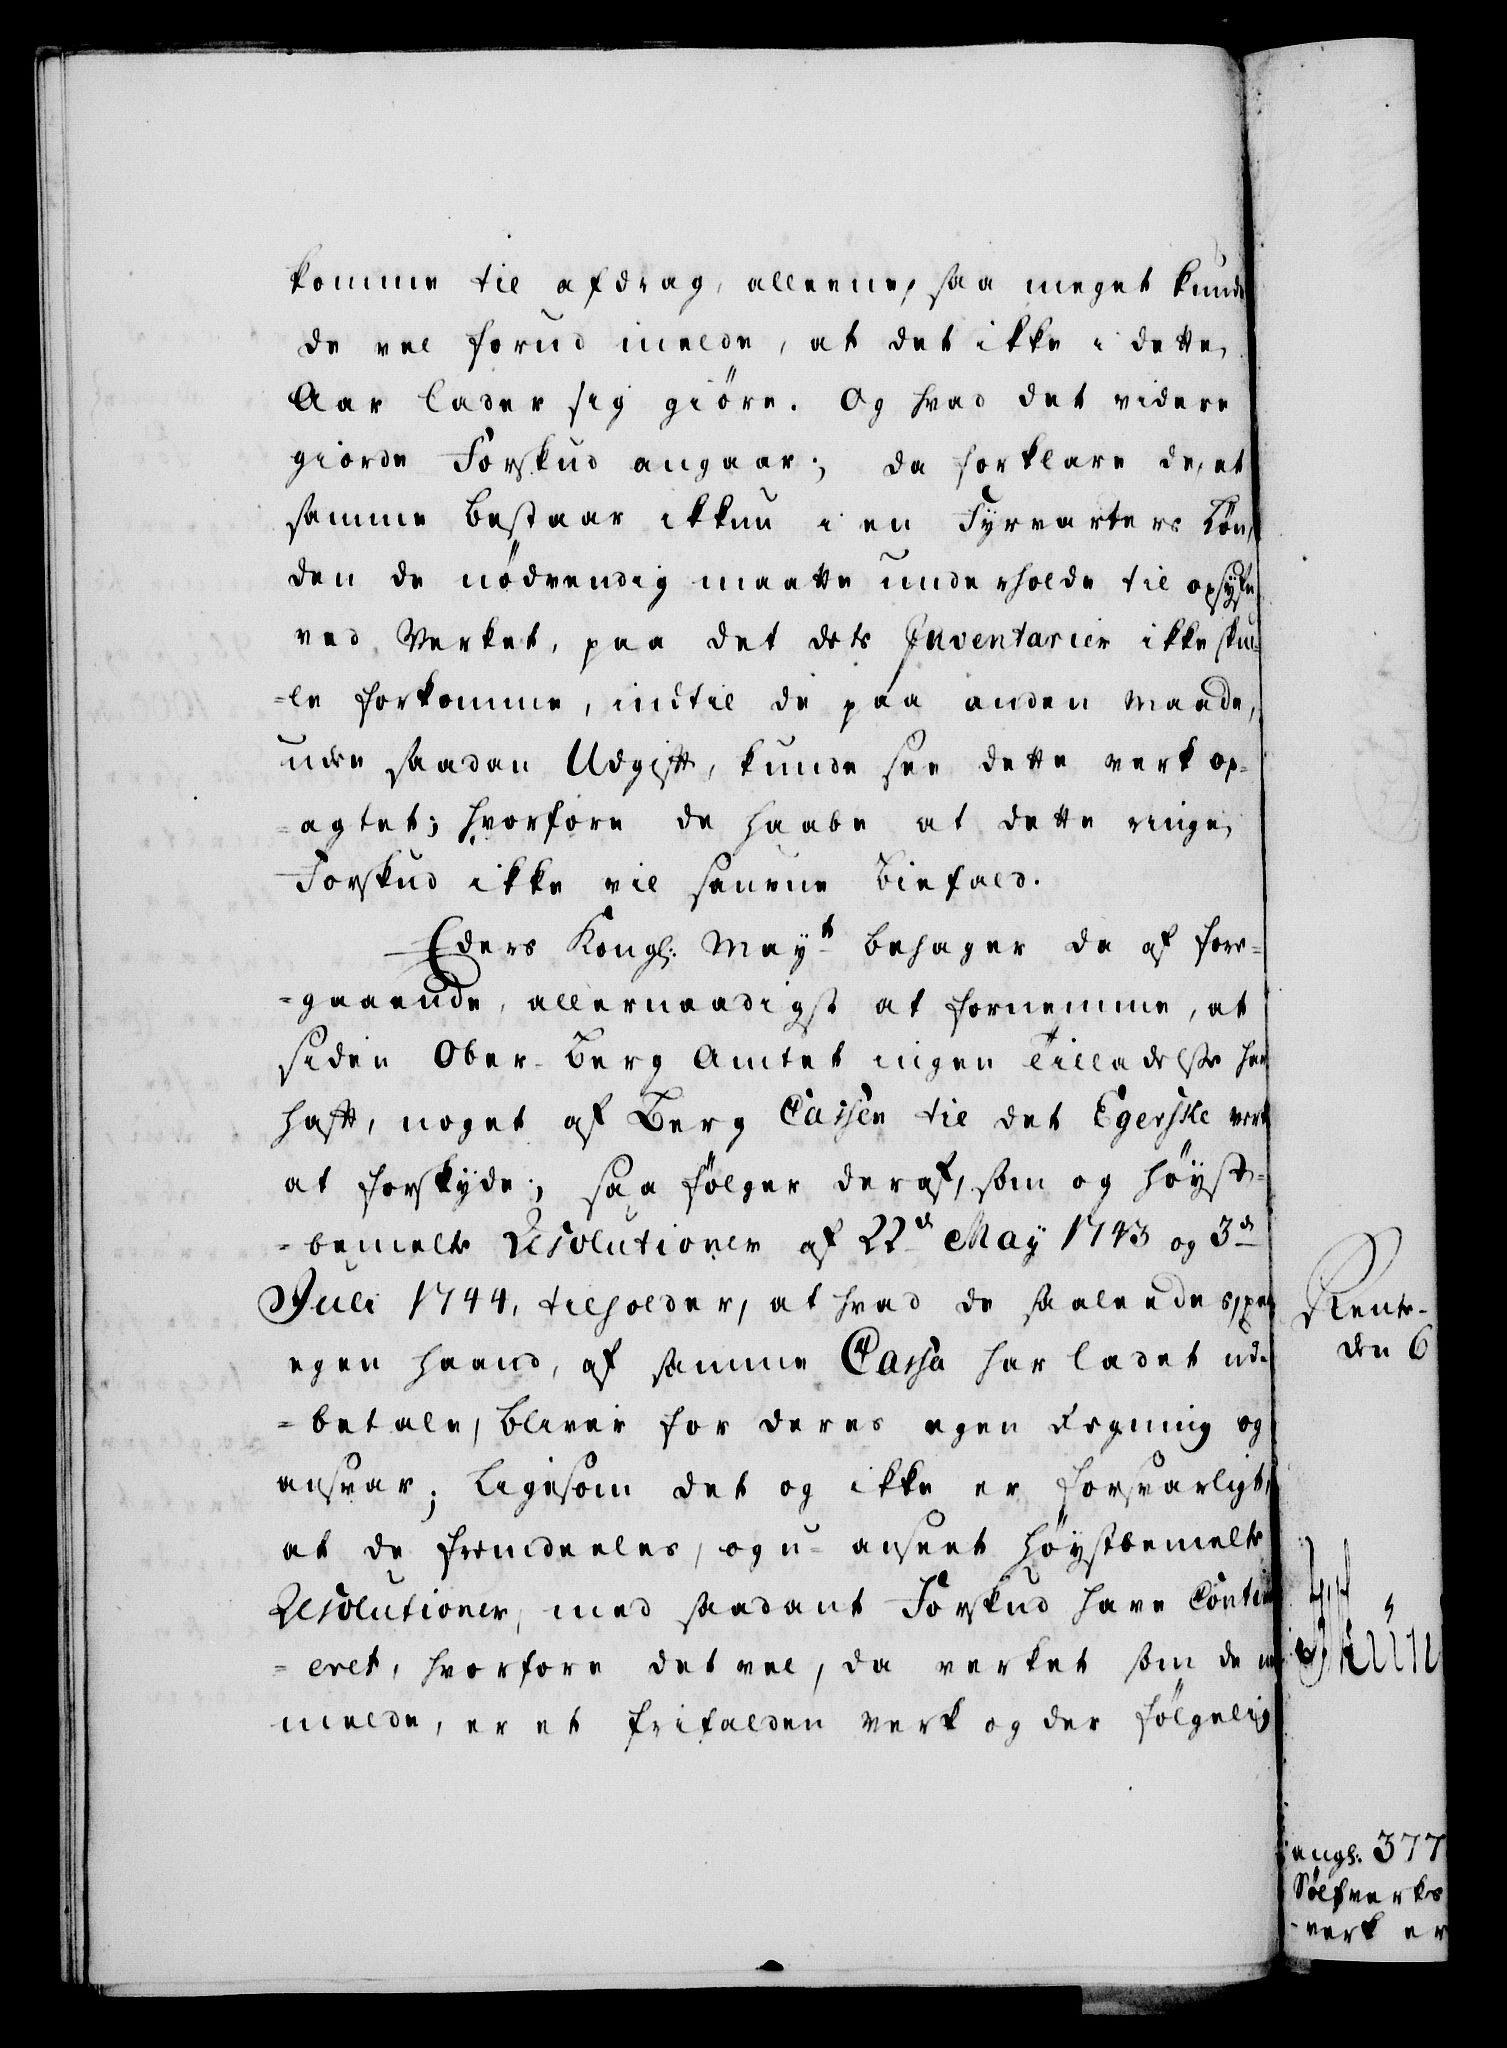 komme til afdrag, alleene, saa meget kunde
de vel forud melde, at det ikke i dette
Aar lader sig giöre. Og hvad det videre
giorde Forskud angaar; da forklare de, at
samme bestaar ikkun i en Fyrvarters Løn,
den de nödvendig maatte underholde til opsyn
ved Verket, paa det dets Inventarier ikke skul-
-le forkomme, indtil de paa anden Maade,
uden saadan Udgift, kunde see dette verk op-
-agtet; hvorfore de haabe at dette ringe
Forskud ikke vil savne Biefald.
Eders Kongl: Mayt behager da af fore-
-gaaende, allernaadigst at fornemme, at
siden Ober-Berg Amtet ingen Tilladelse har
haft, noget af Berg Cassen til det Egerske verk
at forskyde; saa fölger deraf, som og höyst-
-bemelte Resolutioner af 22de May 1743 og 3de
Juli 1744, tilholder, at hvad de saaleedes, paa
egen haand, af samme Cassa har ladet ud-
-betale, bliver for deres egen Regning og
ansvar; Ligesom det og ikke er forsvarligt,
at de fremdeeles, og u-anseet höystbemelte
Resolutioner, med saadant Forskud have Contin
-eret, hvorfore det vel, da verket som de
melde, er et frifalden Verk og der fölgelig
Rente-
den 6
angl: 377
Sölfverks
-verk er